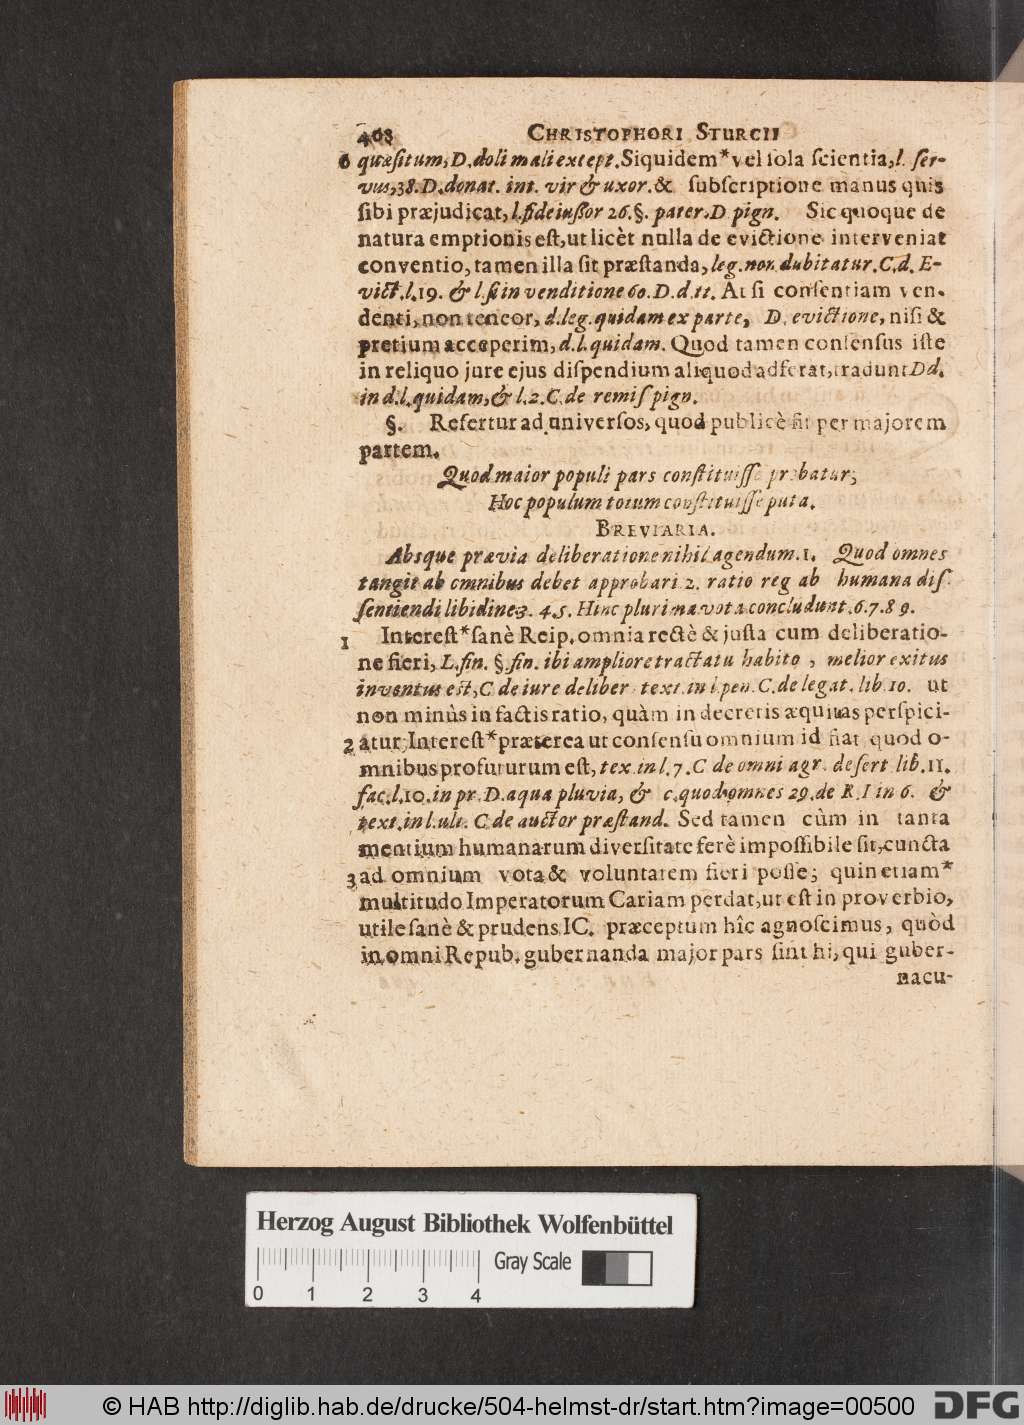 408 CHRISTOPHORI STURCII
6 quæsitum, D. doli mali except. Siquidem* vel sola scientia, l. ser-
vus, 38. D. donat. int. vir & uxor. & subscriptione manus quis
sibi præjudicat, l. fideiussor 26. §. pater, D pign. Sic quoque de
natura emptionis est, ut licèt nulla de evictione interveniat
conventio, tamen illa sit præstanda, leg. non dubitatur. C. d. E-
vict. l. 19. & l. si in venditione 60. D. d. tt. At si consentiam ven-
denti, non teneor, d. leg. quidam ex parte, D. evictione, nisi &
pretium acceperim, d. l. quidam. Quod tamen consensus iste
in reliquo jure ejus dispendium aliquod adferat, tradunt Dd.
in d. l. quidam, & l. 2. C. de remis pign.
§. Refertur ad universos, quod publicè fit per majorem
partem.
Quod maior populi pars constituisse probatur,
Hoc populum totum constituisse puta.
BREVIARIA.
Absque prævia deliberatione nihil agendum. 1. Quod omnes
tangit ab omnibus debet approbari 2. ratio reg ab humana dis-
sentiendi libidine 3. 4. 5. Hinc plurima vota concludunt. 6. 7. 8 9.
1 Interest* sanè Reip. omnia rectè & justa cum deliberatio-
ne fieri, L. fin. §. fin. ibi ampliore tractatu habito, melior exitus
inventus est, C de iure deliber. text. in l pen. C. de legat. lib 10. ut
non minùs in factis ratio, quàm in decretis æquitas perspici-
2 atur, Interest* præterea ut consensu omnium id fiat quod o-
mnibus profuturum est, tex. in l. 7. C de omni agr. desert lib. 11.
fac. l. 10. in pr. D. aqua pluvia, & c. quod omnes 29. de R. I in 6. &
text. in l. ult. C. de auctor præstand. Sed tamen cùm in tanta
mentium humanarum diversitate ferè impossibile sit, cuncta
3 ad omnium vota & voluntatem fieri posse; quin etiam*
multitudo Imperatorum Cariam perdat, ut est in proverbio,
utile sanè & prudens IC. præceptum hîc agnoscimus, quòd
in omni Repub. gubernanda major pars sint hi, qui guber-
nacu-
Herzog August Bibliothek Wolfenbüttel
Gray Scale
0 1 2 3 4
© HAB http://diglib.hab.de/drucke/504-helmst-dr/start.htm?image=00500
DFG